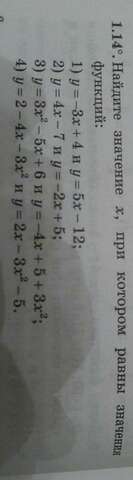 1.14°. Найдите значение x, при котором равны значения
функций:
1) y = –3x + 4 и y = 5x – 12;
2) y = 4x – 7 и y = –2x + 5;
3) y = 3x² – 5x + 6 и y = –4x + 5 + 3x²;
4) y = 2 – 4x – 3x² и y = 2x – 3x² – 5.